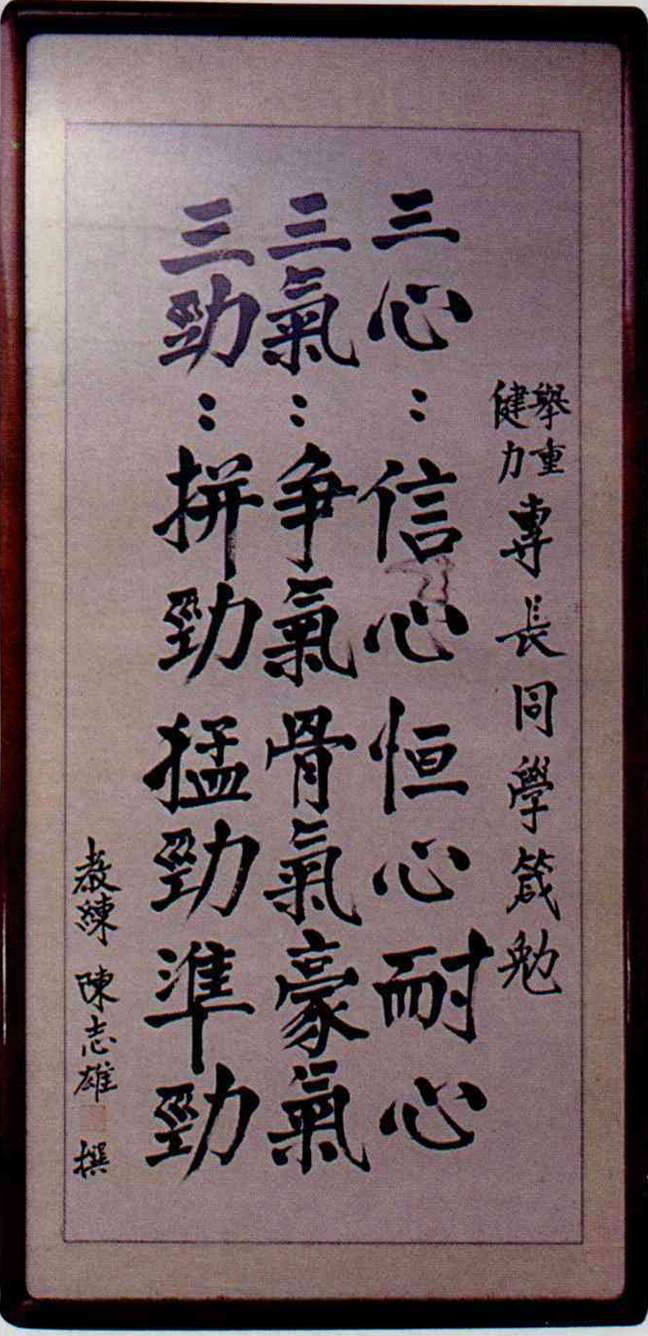 舉重
健力
專長同學箴勉
三心：信心恒心耐心
三氣：爭氣骨氣豪氣
三勁：拼勁猛勁準勁
教練 陳志雄 撰